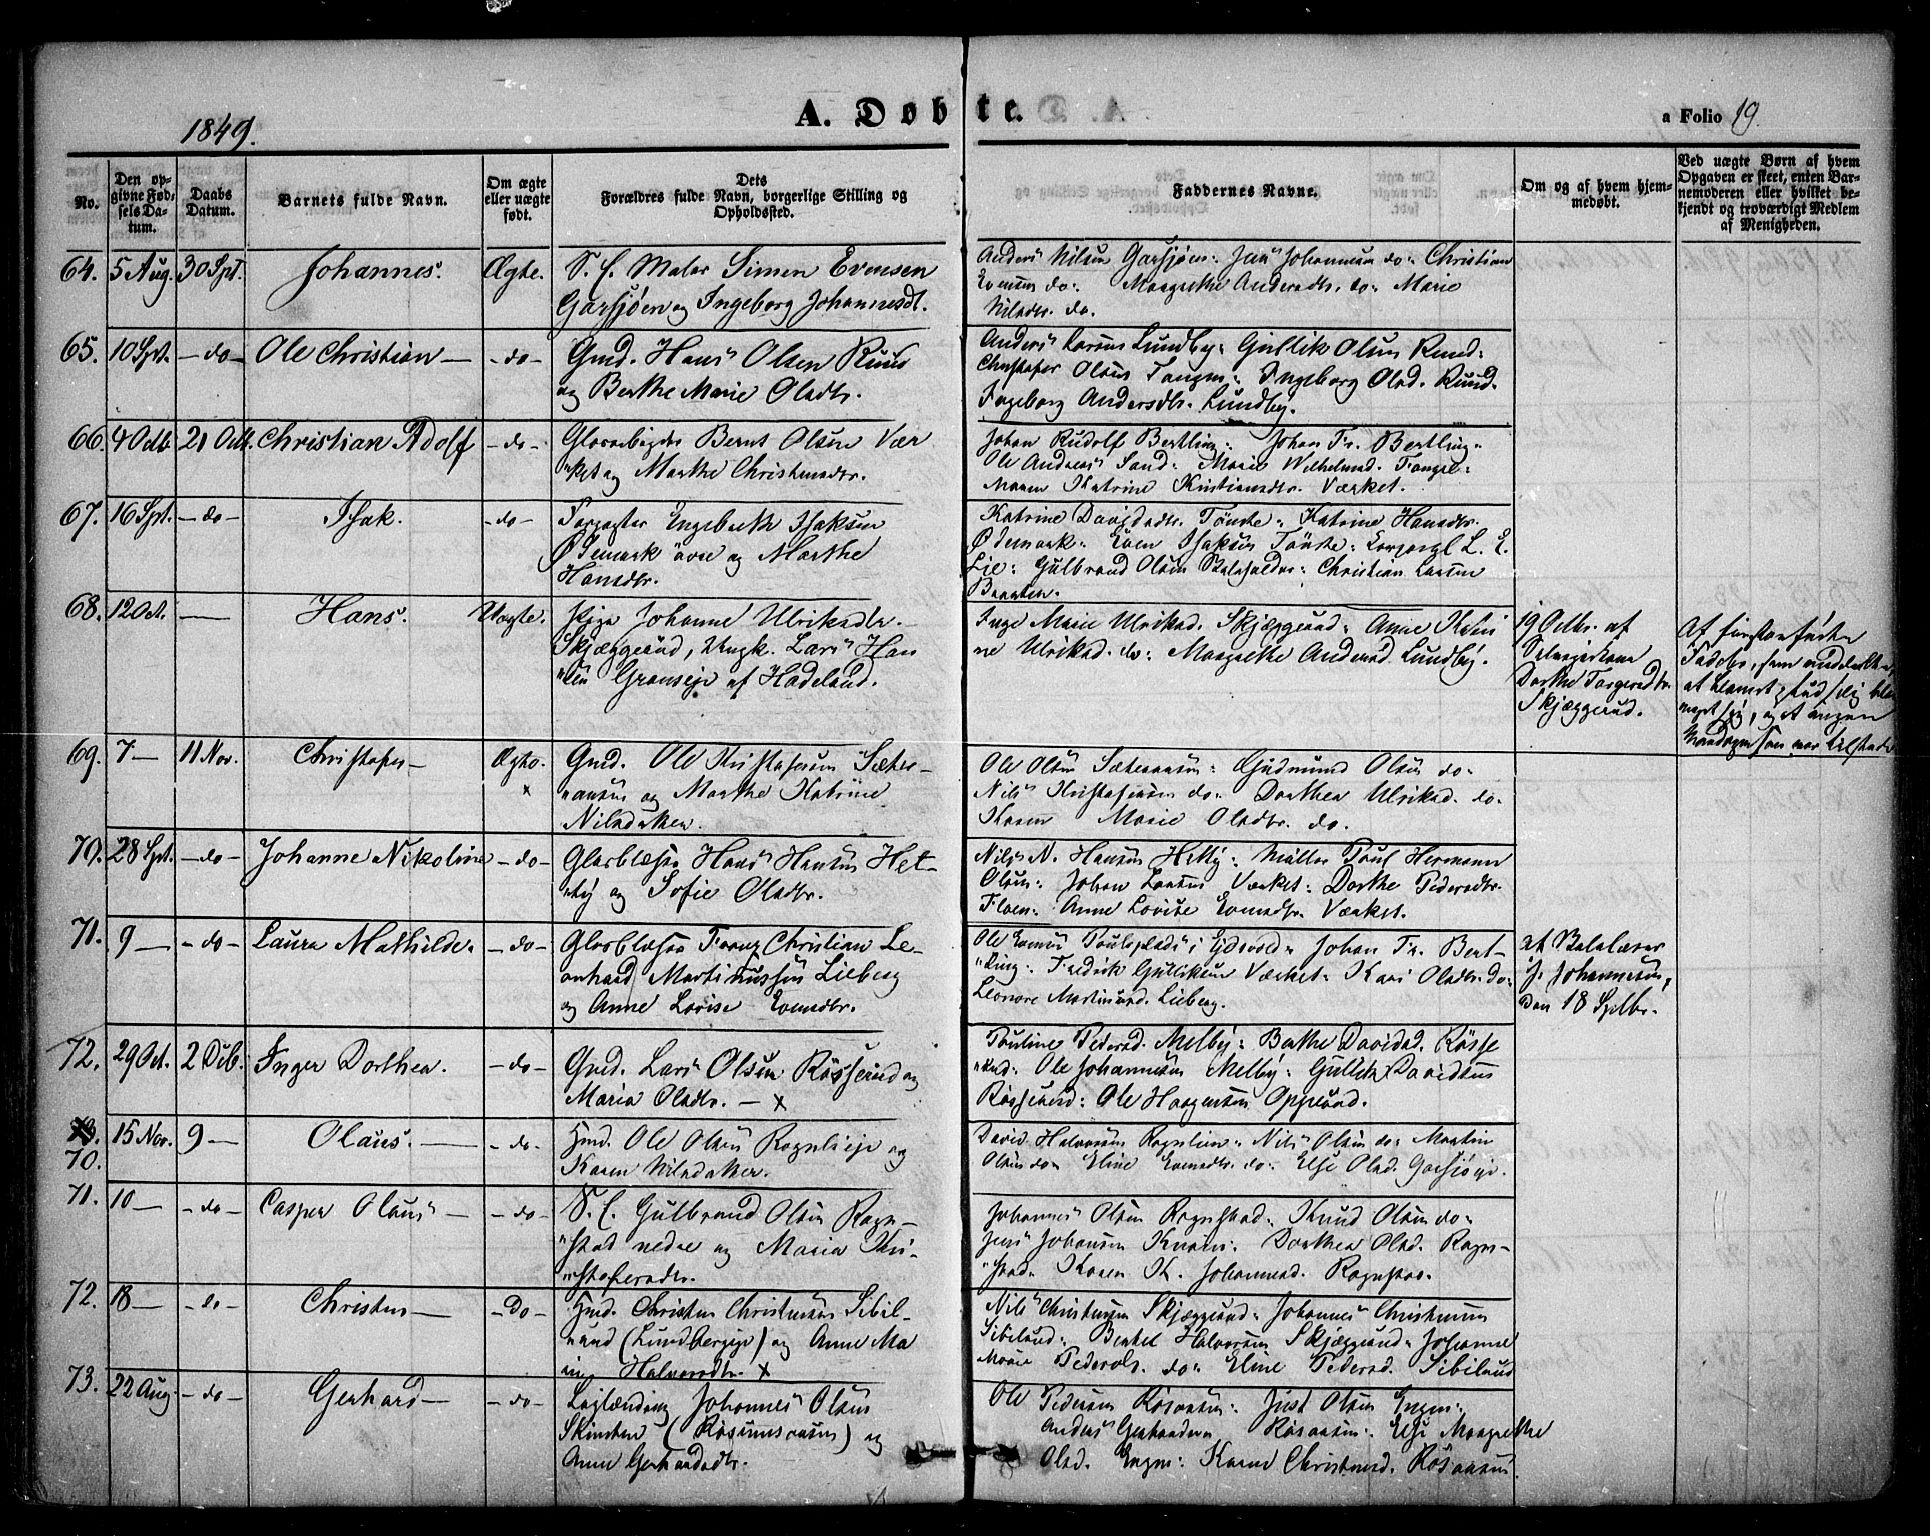 1849.
A. Døbte.
a Folio 19.
No.
Den op-
givne Fød-
sels Da-
tum.
Daabs
Datum.
Barnets fulde Navn.
Om ægte
eller uægte
født.
Dets
Forældres fulde Navn, borgerlige Stilling og
Opholdssted.
Faddernes Navne.
Om og af hvem hjem-
medøbt.
Ved uægte Børn af hvem
Opgaven er skeet, enten Bar-
nemoderen eller hvilket be-
kjendt og troværdigt Medlem
af Menigheden.
64. 5 Aug. 30 Spt. Johannes. Ægte.
S. E. Maler Simen Evensen
Garsjøen og Ingeborg Johannesdt.
Anders Nilsen Garsjøen: Jens Johannesen do: Christian
Evensen do: Margrethe Andersdtr. do: Marie
Nilsdtr. do.
65. 10 Spt. - do - Ole Christian - - do -
Gmd. Hans Olsen Ruud
og Berthe Marie Olsdtr.
Anders Larsen Lundby: Gullik Olsen Ruud:
Christofer Olsen Tangen: Ingeborg Olsd. Ruud.
Ingeborg Andersdtr. Lundby.
66. 4 Octb. 21 Octb. Christian Adolf - do -
Glasarbeider Bernt Olsen Vær
"ket og Marthe Christensdtr.
Johan Rudolf Bertling: Johan Fr. Bertling:
Ole Andreas Sand: Marie Wilhelmsd.
Maren Katrine Kristiansdtr. Værket.
67. 16 Spt. - do - Isak. - do -
Forpagter Engebreth Isaksen
Ødemark övre og Marthe
Hansdtr.
Katrine Davidsdtr. Tönste: Katrine Hansdtr.
Ødemark: Even Isaksen Tönste: Korporal L. E.
Lie: Gulbrand Olsen Christian Larsen
Braaten.
68. 12 Oct. - Hans. Uægte.
Pige Johanne Ulriksdtr.
Skjæggerud, Ungk. Lars Han
"sen Granseje af Hadeland.
Inge Marie Ulriksd. Skjæggerud: Anne Katri
ne Ulriksd. do: Margrethe Andersd. Lundby.
19 Octbr. af
Dorthe Torgersdtr.
Skjæggerud.
Af
Faddere, som
at Barnet
69. 7 - 11 Nov. Christofer - Ægte.
x
Gmd. Ole Kristofersen Sæter-
aasen og Marthe Katrine
Nilsdatter.
Ole Olsen Sæteraasen: Gudmund Olsen do:
Nils Kristofersen do: Dorthea Ulriksd. do:
Karen Marie Olsdtr. do.
70. 28 Spt. - do - Johanne Nikoline - do -
Glasblæser Hans Hansen Het-
"ty og Sofie Olsdtr.
Nils N. Hansen Hetty: Møller Poul Hermann
Olsen: Johan Larsen Værket: Dorthe Pedersdtr.
Floen: Anne Lovise Evensdtr. Værket.
71. 9 - - do - Laura Mathilde. - do -
Glasblæser Frantz Christian Le-
onhard Martinussen Lieberg
og Anne Lovise Evensdtr.
Ole Evensen Poulsplads i Eidsvold: Johan Fr. Bert-
"ling: Fredrik Gulliksen Værket: Kari Olsdtr. do:
Leonore Martinusd. Lieberg.
af
J. Johannesen,
den 18 Sptbr.
72. 29 Oct. 2 Dcb. Inger Dorthea. - do -
Gmd. Lars Olsen Rösserud og
Maria Olsdtr. - x
Pauline Pedersd. Melby: Berthe Davidsd. Rösse
"rud: Ole Johannesen Melby: Gullik Davidsen
Rösserud: Ole Haagensen Opperud.
73.
70. 15 Nov. 9 - Olaus. - - do -
Hmd. Ole Olsen Rognlieje og
Karen Nilsdatter.
David Halvorsen Rognlien: Nils Olsen do: Martin
Olsen do: Eline Evensdtr. do: Else Olsd. Garsjøeje.
71. 10 - - do - Casper Olaus - - do -
S. E. Gulbrand Olsen Rogn-
"stad nedre og Maria Kri-
"stofersdtr.
Johannes Olsen Rognstad: Knud Olsen do:
Jens Johansen Dorthea Olsd. Rogn-
"stad: Karen K. Johannesd. Rognstad.
72. 18 - - do - Christen - - do -
Hmd. Christen Christensen Sibil-
"rund (Lundbyeje) og Anne Ma
rie Halvorsdtr. x
Nils Christensen Skjæggerud: Johannes Christensen
Sibilrud: Berthel Halvorsen Skjæggerud: Johanne
Marie Pedersdtr. do: Eline Pedersd. Sibilrud
73. 22 Aug. - do - Gerhard - - do -
Johannes Olsen
Skinstad og
Anne Gerhardsdtr.
Ole Pedersen Rösaasen: Just Olsen Engen:
Anders Gerhardsen Rösaasen: Else Margrethe
Olsd. Engen: Karen Christensd. Rösaasen.